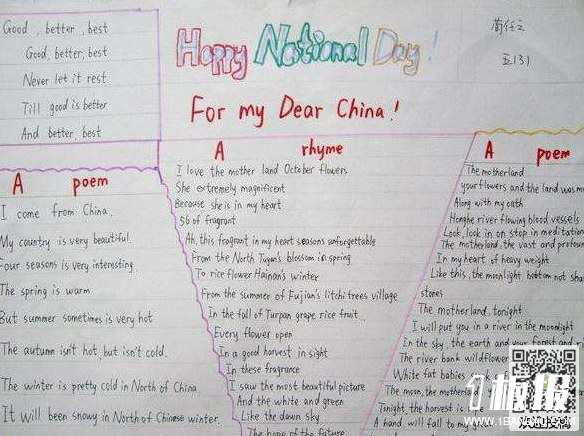 Good, better, best
Good, better, best
Never let it rest
Till good is better
And better, best
Happy National Day!
For my Dear China!
五(3)
A poem
I come from China.
My country is very beautiful.
Four seasons is very interesting.
The spring is warm
But summer sometimes is very hot
The autumn isn't hot, but isn't cold.
The winter is pretty cold in North of China.
It will been snowy in North of Chinese winter.
A rhyme
I love the mother land October flowers
She extremely magnificent
Because she is in my heart
56 of fragrant
Ah, this fragrant in my heart seasons unforgettable
From the North Tuyan's blossom in spring
To rice flower Hainan's winter
From the summer of Fujian's litchi trees village
In the fall of Turpan grape rice fruit
Every flower open
In a good harvest in sight
In these fragrance
I saw the most beautiful picture
And the white and green
Like the dawn sky
The hope of the future
A poem
The motherland
your flowers and the land was
Along with my oath
Honghe river flowing blood vessels
Look, look in on stop in meditation
The motherland, the vast and
In my heart of heavy weight
Like this, the moonlight bottom not
stones
The motherland, tonight
I will put you in a river in the moonlight
In the sky, the earth and your forest and
The river bank wildflower
White fat babies
The moon, the motherland
Tonight, the harvest is the
A hand, will fall to my
板报
WWW.1BANBAO.COM